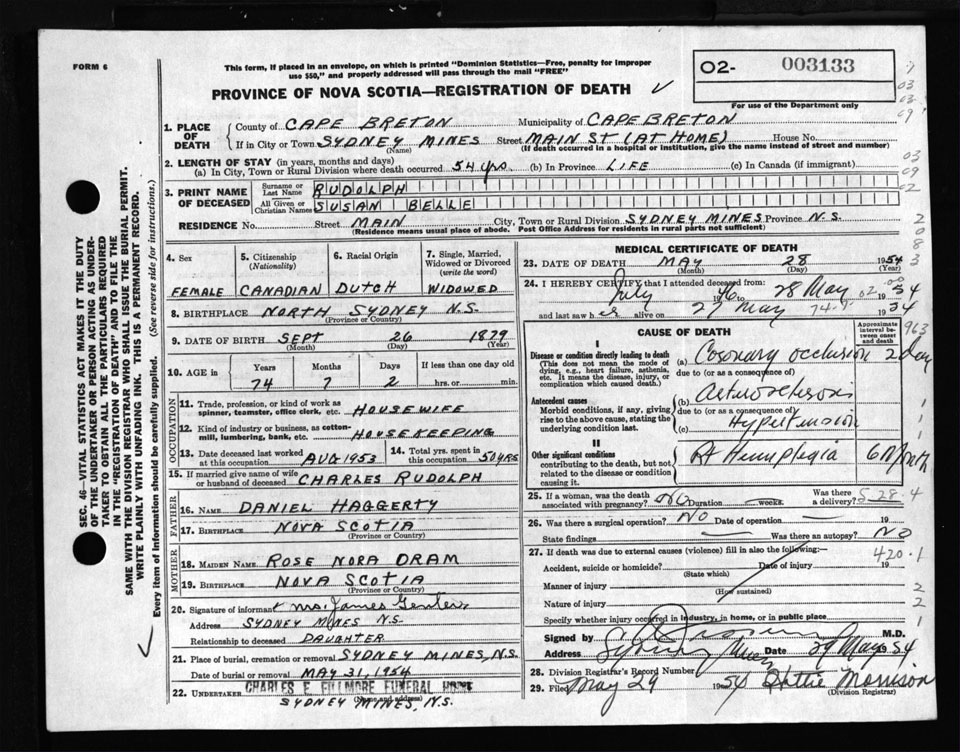 FORM 6
This form, if placed in an envelope, on which is printed "Dominion Statistics—Free, penalty for improper
use $50," and properly addressed will pass through the mail "FREE"
PROVINCE OF NOVA SCOTIA—REGISTRATION OF DEATH
02- 003133
For use of the Department only
1. PLACE OF DEATH
County of CAPE BRETON Municipality of CAPE BRETON
If in City or Town SYDNEY MINES Street MAIN ST (AT HOME) House No.
(Name) (If death occurred in a hospital or institution, give the name instead of street and number)
2. LENGTH OF STAY (in years, months and days)
(a) In City, Town or Rural Division where death occurred 54 yrs. (b) In Province LIFE (c) In Canada (if immigrant)
3. PRINT NAME OF DECEASED
Surname or Last Name RUDOLPH
All Given or Christian Names SUSAN BELLE
RESIDENCE No. Street MAIN City, Town or Rural Division SYDNEY MINES Province N.S.
(Residence means usual place of abode. Post Office Address for residents in rural parts not sufficient)
4. Sex
FEMALE
5. Citizenship (Nationality)
CANADIAN
6. Racial Origin
DUTCH
7. Single, Married, Widowed or Divorced (write the word)
WIDOWED
8. BIRTHPLACE NORTH SYDNEY N.S.
9. DATE OF BIRTH SEPT 26 1879
(Month) (Day) (Year)
10. AGE in Years Months Days If less than one day old
74 7 2 hrs. or min.
OCCUPATION
11. Trade, profession, or kind of work as spinner, teamster, office clerk, etc. HOUSEWIFE
12. Kind of industry or business, as cotton-mill, lumbering, bank, etc. HOUSEKEEPING
13. Date deceased last worked at this occupation AUG 1953
14. Total yrs. spent in this occupation 50 YRS
15. If married give name of wife or husband of deceased CHARLES RUDOLPH
FATHER
16. NAME DANIEL HAGGERTY
17. BIRTHPLACE NOVA SCOTIA
(Province or Country)
MOTHER
18. MAIDEN NAME ROSE NORA ORAM
19. BIRTHPLACE NOVA SCOTIA
(Province or Country)
20. Signature of informant Mrs. James
Address SYDNEY MINES N.S.
Relationship to deceased DAUGHTER
21. Place of burial, cremation or removal SYDNEY MINES, N.S.
Date of burial or removal MAY 31, 1954
22. UNDERTAKER CHARLES E. FILLMORE FUNERAL HOME
(Name and address)
SYDNEY MINES, N.S.
MEDICAL CERTIFICATE OF DEATH
23. DATE OF DEATH MAY 28 1954
(Month) (Day) (Year)
24. I HEREBY CERTIFY that I attended deceased from:
July 46 to 28 May 1954
and last saw h er alive on 27 May 1954
CAUSE OF DEATH
Approximate interval between onset and death
I
Disease or condition directly leading to death
(This does not mean the mode of dying, e.g., heart failure, asthenia, etc. It means the disease, injury, or complication which caused death.)
(a) Coronary occlusion 2 day
due to (or as a consequence of)
Antecedent causes
Morbid conditions, if any, giving rise to the above cause, stating the underlying condition last.
(b) Arteriosclerosis
due to (or as a consequence of)
(c) Hypertension
II
Other significant conditions
contributing to the death, but not related to the disease or condition causing it.
Rt Hemiplegia 6 Month
25. If a woman, was the death associated with pregnancy? NO Duration weeks. Was there a delivery?
528.4
26. Was there a surgical operation? NO Date of operation 19
State findings Was there an autopsy? NO
27. If death was due to external causes (violence) fill in also the following:—
420.1
Accident, suicide or homicide? Date of injury 19
(State which)
Manner of injury
(How sustained)
Nature of injury
Specify whether injury occurred in industry, in home, or in public place
Signed by M.D.
Address Sydney Mines Date 29 May 1954
28. Division Registrar's Record Number
29. Filed May 29 1954 Hattie Morrison
(Division Registrar)
SEC. 46—VITAL STATISTICS ACT MAKES IT THE DUTY
OF THE UNDERTAKER OR PERSON ACTING AS UNDER-
TAKER TO OBTAIN ALL THE PARTICULARS REQUIRED
IN THE "REGISTRATION OF DEATH" AND TO FILE THE
SAME WITH THE DIVISION REGISTRAR WHO SHALL ISSUE THE BURIAL PERMIT.
WRITE PLAINLY WITH UNFADING INK. THIS IS A PERMANENT RECORD.
Every item of information should be carefully supplied. (See reverse side for instructions.)